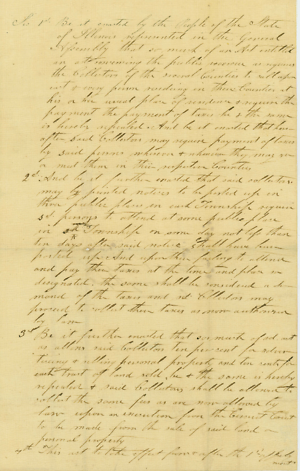 Sec 1st Be it enacted by the People of the State
of Illinois represented in the General
Assembly that so much of an Act entitled
an act concerning the public revenue as requires
the Collectors of the several Counties to call upon
each & every person residing in their Counties at
his or her usual place of residence & require the
payment the payment of taxes be & the same
is hereby repealed And be it enacted that here
after said Collectors may require payment of taxes
by said persons whenever & wherever they may
meet them in their respective Counties
2d And be it further enacted that said collectors
may by printed notices to be posted up in
three public places in each Township require
sd persons to attend at some public place
in sd Township on some day not less than
ten days after said notice shall have been
posted up And upon their failing to attend
and pay their taxes at the time and place so
designated the same shall be considered a de-
mand of the taxes and sd Collectors may
proceed to collect their taxes as now authorized
by law
3d Be it further enacted that so much of sd act
as allows said Collectors ten per cent for
& selling personal property and ten cents for
each tract of land sold, be & the same is hereby
repealed & said Collectors shall be allowed to
collect the same fees as are now allowed by
law upon an execution from the Circuit Court
to be made from the sale of said land or
personal property
4th This act to take effect from & after the 1st